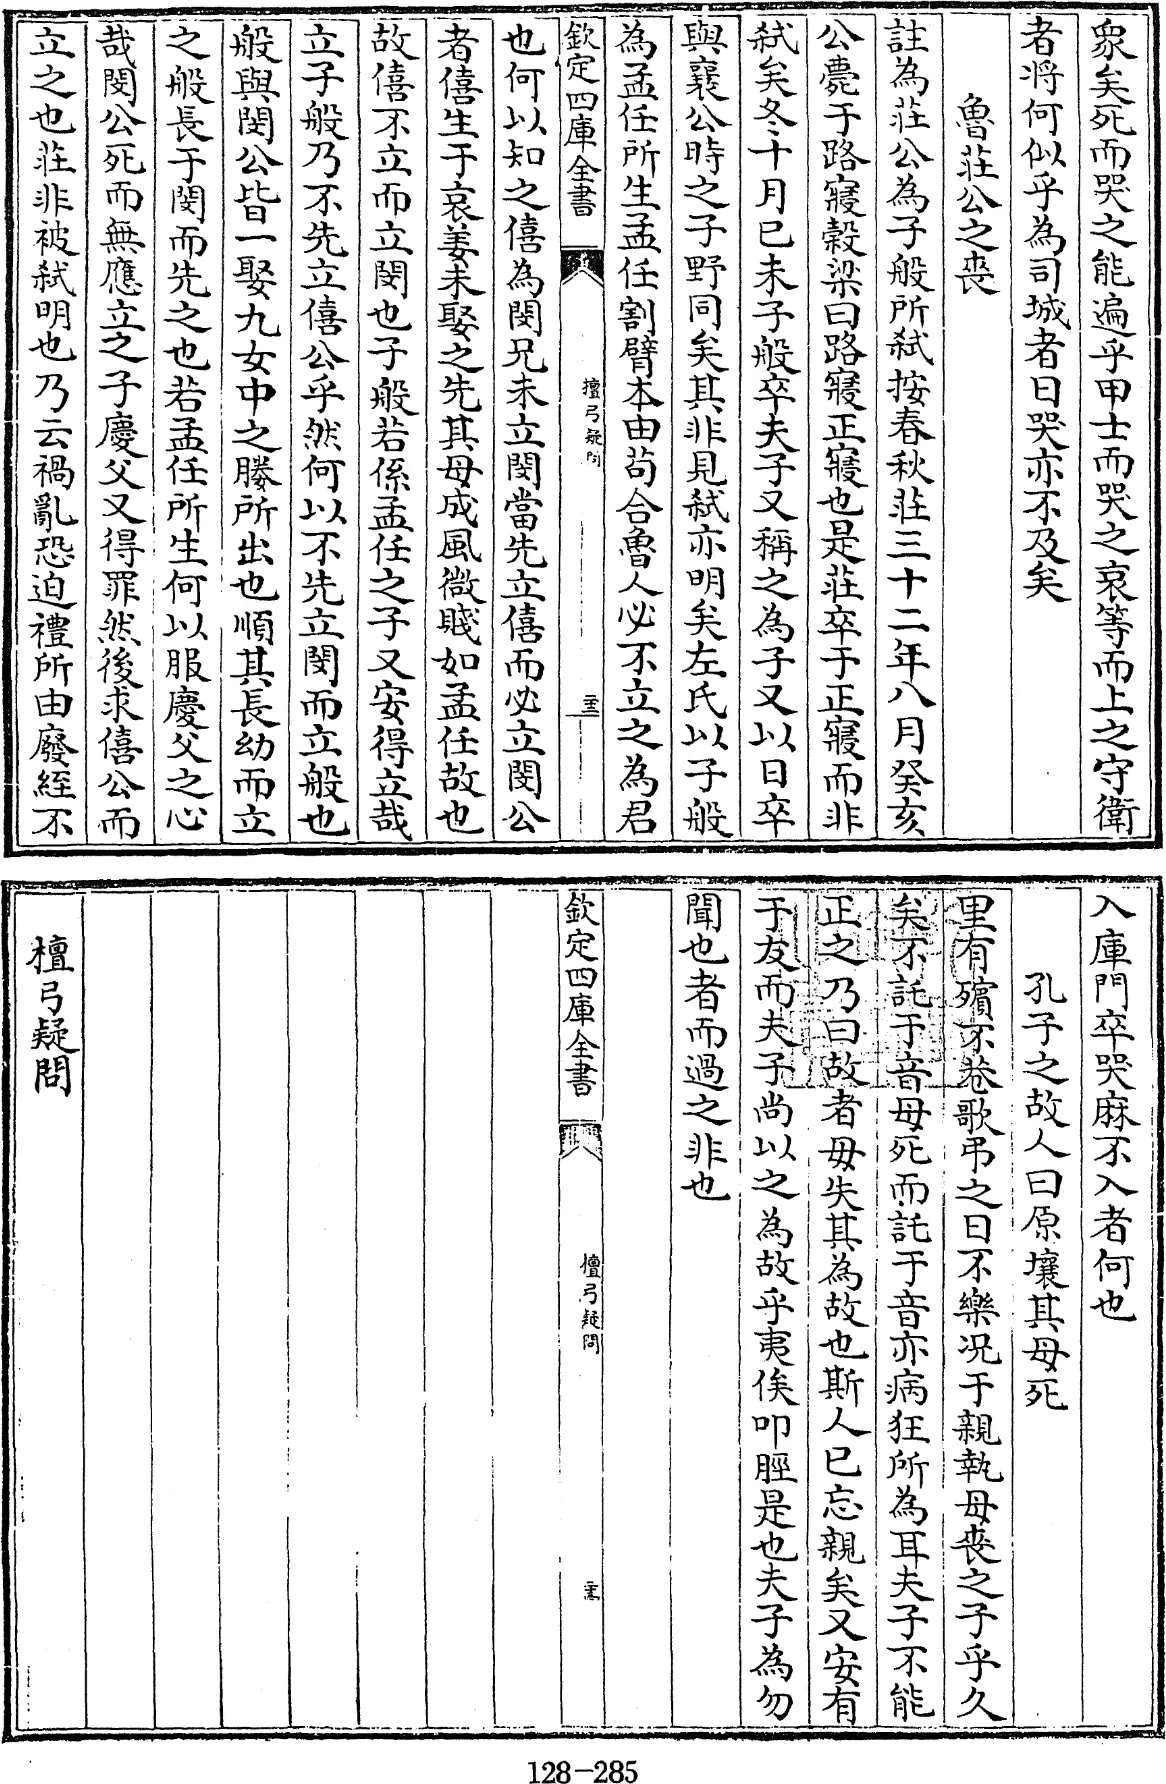 衆矣死而哭之能遍乎甲士而哭之哀等而上之守衛
者將何似乎為司城者曰哭亦不及矣
魯莊公之喪
註為莊公為子般所弑按春秋莊三十二年八月癸亥
公薨于路寢榖梁曰路寢正寢也是莊卒于正寢而非
弑矣冬十月已未子般卒夫子又稱之為子又以日卒
與襄公時之子野同矣其非見弑亦明矣左氏以子般
為孟任所生孟任割臂本由苟合魯人必不立之為君
欽定四庫全書
檀弓疑問
也何以知之僖為閔兄未立閔當先立僖而必立閔公
者僖生于哀姜未娶之先其母成風微賤如孟任故也
故僖不立而立閔也子般若係孟任之子又安得立哉
立子般乃不先立僖公乎然何以不先立閔而立般也
般與閔公皆一娶九女中之媵所出也順其長幼而立
之般長于閔而先之也若孟任所生何以服慶父之心
哉閔公死而無應立之子慶父又得罪然後求僖公而
立之也莊非被弑明也乃云禍亂恐迫禮所由廢絰不
入庫門卒哭麻不入者何也
孔子之故人曰原壤其母死
里有殯不巷歌弔之日不樂况于親執母喪之子乎久
矣不託于音母死而託于音亦病狂所為耳夫子不能
正之乃曰故者毋失其為故也斯人已忘親矣又安有
于友而夫子尚以之為故乎夷俟叩脛是也夫子為勿
聞也者而過之非也
欽定四庫全書
檀弓疑問
檀弓疑問
128-285